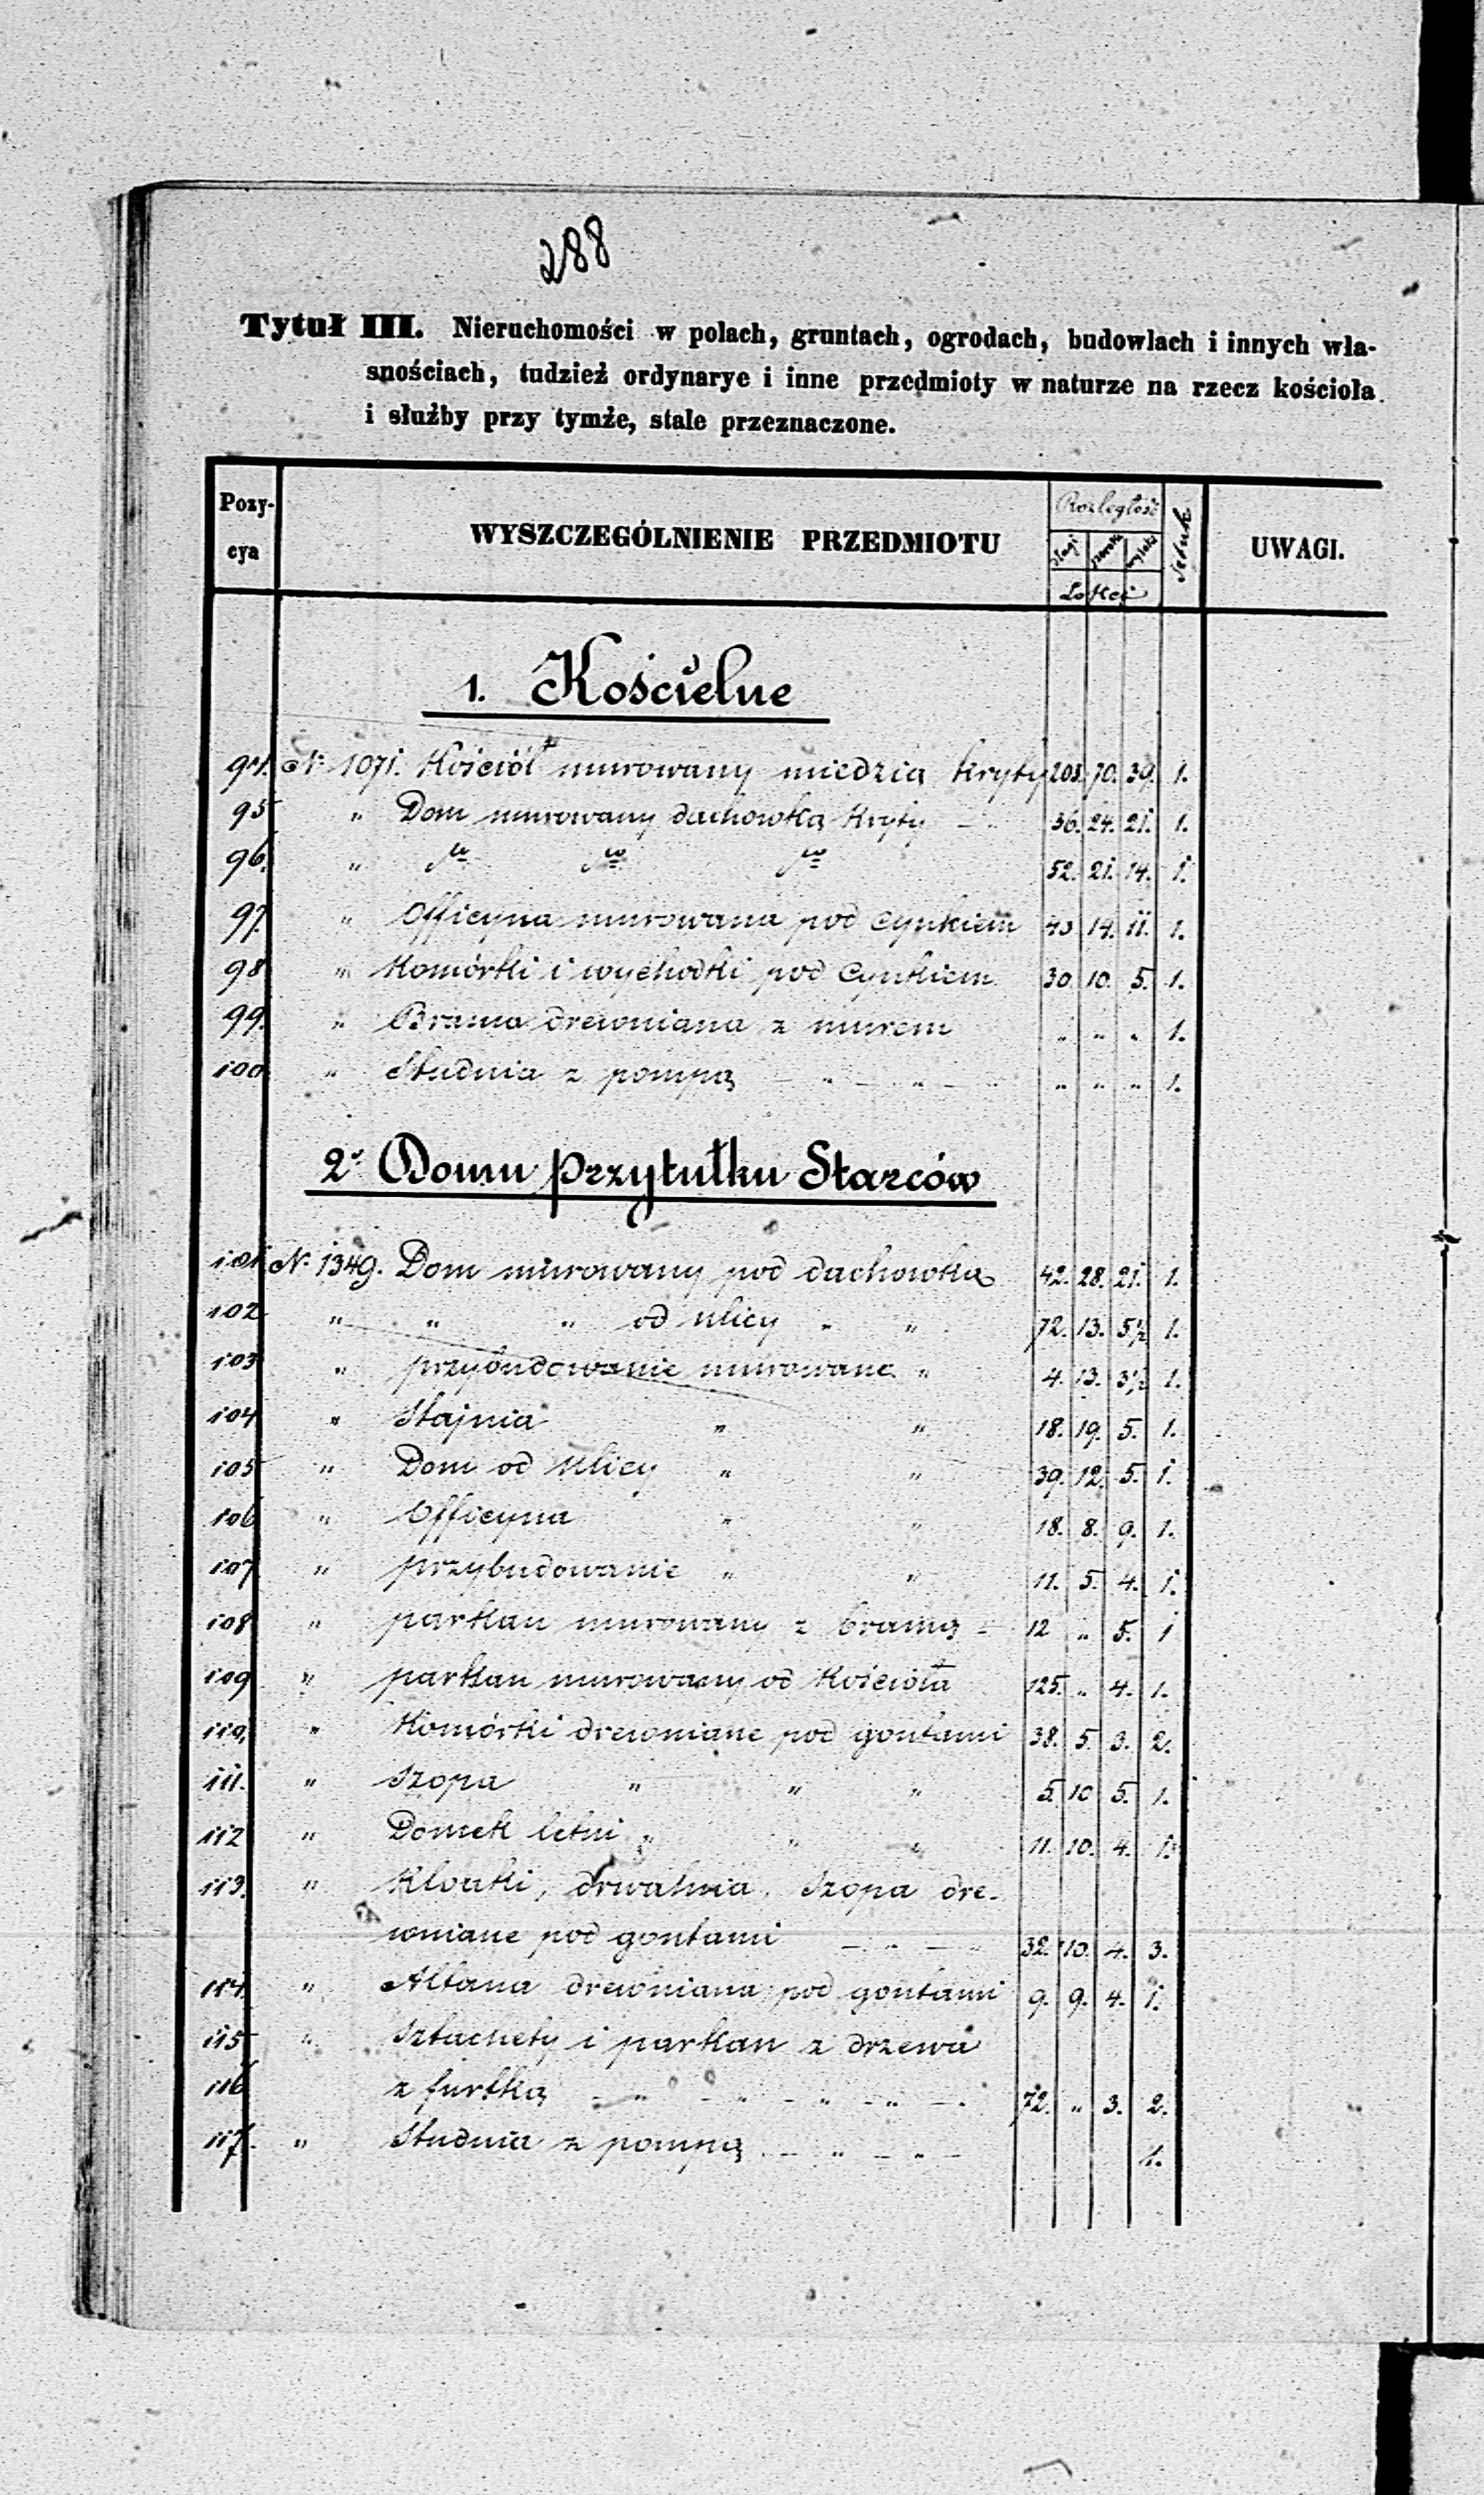 288
Tytuł III. Nieruchomości w polach, gruntach, ogrodach, budowlach i innych wła-
snościach, tudzież ordynarye i inne przedmioty w naturze na rzecz kościoła
i służby przy tymże, stale przeznaczone.
Pozy-
cya
WYSZCZEGÓLNIENIE PRZEDMIOTU
Rozległość
Łokci
Sztuk
UWAGI.
1. Kościelne
94. N. 1071. Kościół murowany miedzią kryty 208. 70. 39. 1.
95 " Dom murowany dachowką kryty 36. 24. 21. 1.
96. " 52. 21. 14. 1.
97. " Officyna murowana pod cynkiem 43 14. 11. 1.
98 " Komórki i wychodki pod Cynkiem 30. 10. 5. 1.
99. " Brama drewniana z murem " " " 1.
100 " Studnia z pompą — " — " — " " " 1.
2. Domu Przytułku Starców
101 N. 1349. Dom murowany pod dachowką 42. 28. 21. 1.
102 " " " od ulicy " " 72. 13. 5½ 1.
103 " przybudowanie murowane " 4. 13. 3½ 1.
104 " Stajnia " " 18. 19. 5. 1.
105 " Dom od Ulicy " " 39. 12. 5. 1.
106 " Officyna " " 18. 8. 9. 1.
107 " przybudowanie " " 11. 5. 4. 1.
108 " parkan murowany z bramą 12 " 5. 1
109 " parkan murowany od Kościoła 125. " 4. 1.
110. " Komórki drewniane pod gontami 38. 5. 3. 2.
111. " Szopa " " " 5. 10 5. 1.
112 " Domek letni " " " 11. 10. 4. 1.
113. " Kloaki, drwalnia, Szopa dre-
wniane pod gontami — " — " 32. 10. 4. 3.
114. " Altana drewniana pod gontami 9. 9. 4. 1.
115 " Sztachety i parkan z drzewa
116 z furtką — " — " — " — " — 72. " 3. 2.
117. " Studnia z pompą — " — " — 1.